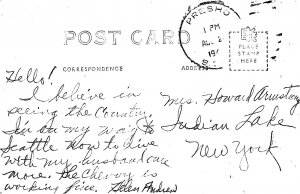 PRESHO
1 PM
POST CARD
PLACE
STAMP
HERE
CORRESPONDENCE
ADDRESS
Hello!
I believe in
seeing the Country.
I'm on my way to
Seattle Now to live
with my husband once
more. The Chevy is
working fine. Helen Andrew
Mrs. Howard Armstrong
Indian Lake
New York